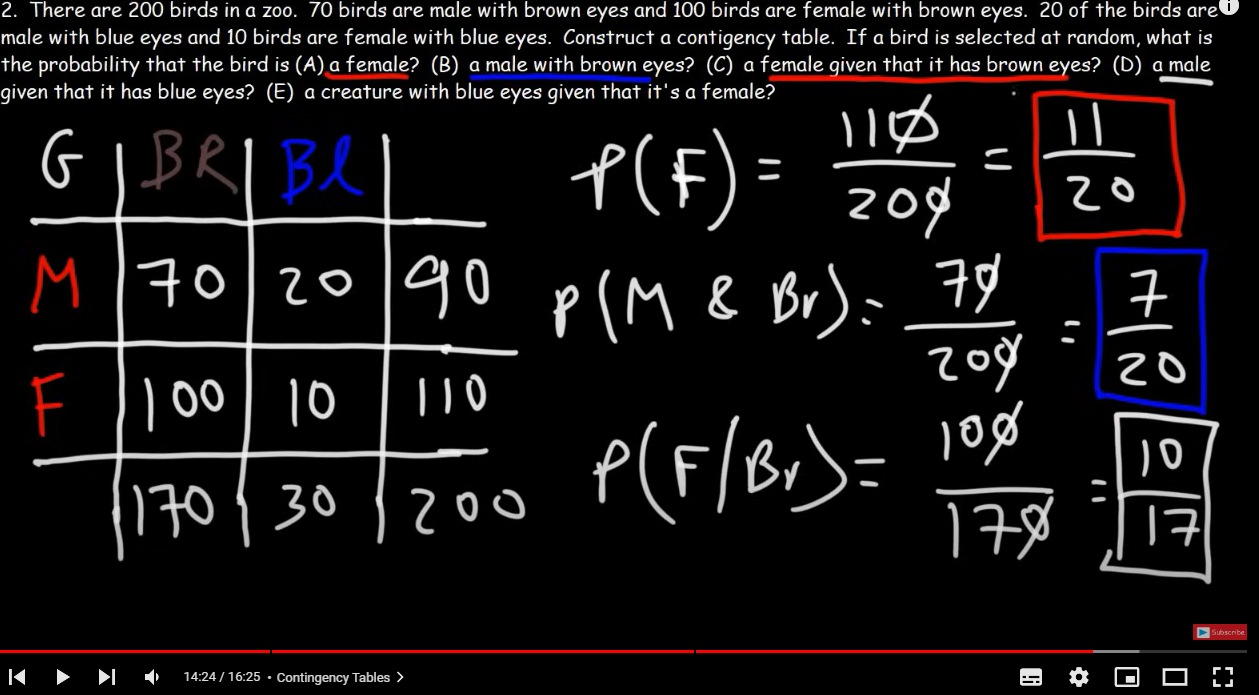 2. There are 200 birds in a zoo. 70 birds are male with brown eyes and 100 birds are female with brown eyes. 20 of the birds are
male with blue eyes and 10 birds are female with blue eyes. Construct a contigency table. If a bird is selected at random, what is
the probability that the bird is (A) a female? (B) a male with brown eyes? (C) a female given that it has brown eyes? (D) a male
given that it has blue eyes? (E) a creature with blue eyes given that it's a female?
G BR Bl
M 70 20 90
F 100 10 110
170 30 200
P(F) = 110/200 = 11/20
P(M & Br) = 70/200 = 7/20
P(F/Br) = 100/170 = 10/17
Subscribe
14:24 / 16:25 • Contingency Tables >